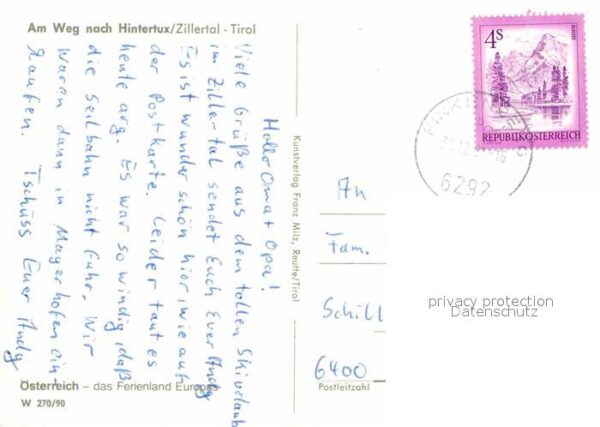 Am Weg nach Hintertux/Zillertal - Tirol
Hallo Oma + Opa!
Viele Grüße aus dem tollen Skiurlaub
im Zillertal sendet Euch Euer Andy
Es ist wunderschön hier, wie auf
der Postkarte. Leider taut es
heute arg. Es war so windig, daß
die Seilbahn nicht fuhr. Wir
waren dann in Mayerhofen ein-
kaufen. Tschüss Euer Andy
Österreich – das Ferienland Europas
W 270/90
Kunstverlag Franz Milz, Reutte/Tirol
4S
REPUBLIK ÖSTERREICH
6292
An
Fam.
Schill
6400
Postleitzahl
privacy protection
Datenschutz